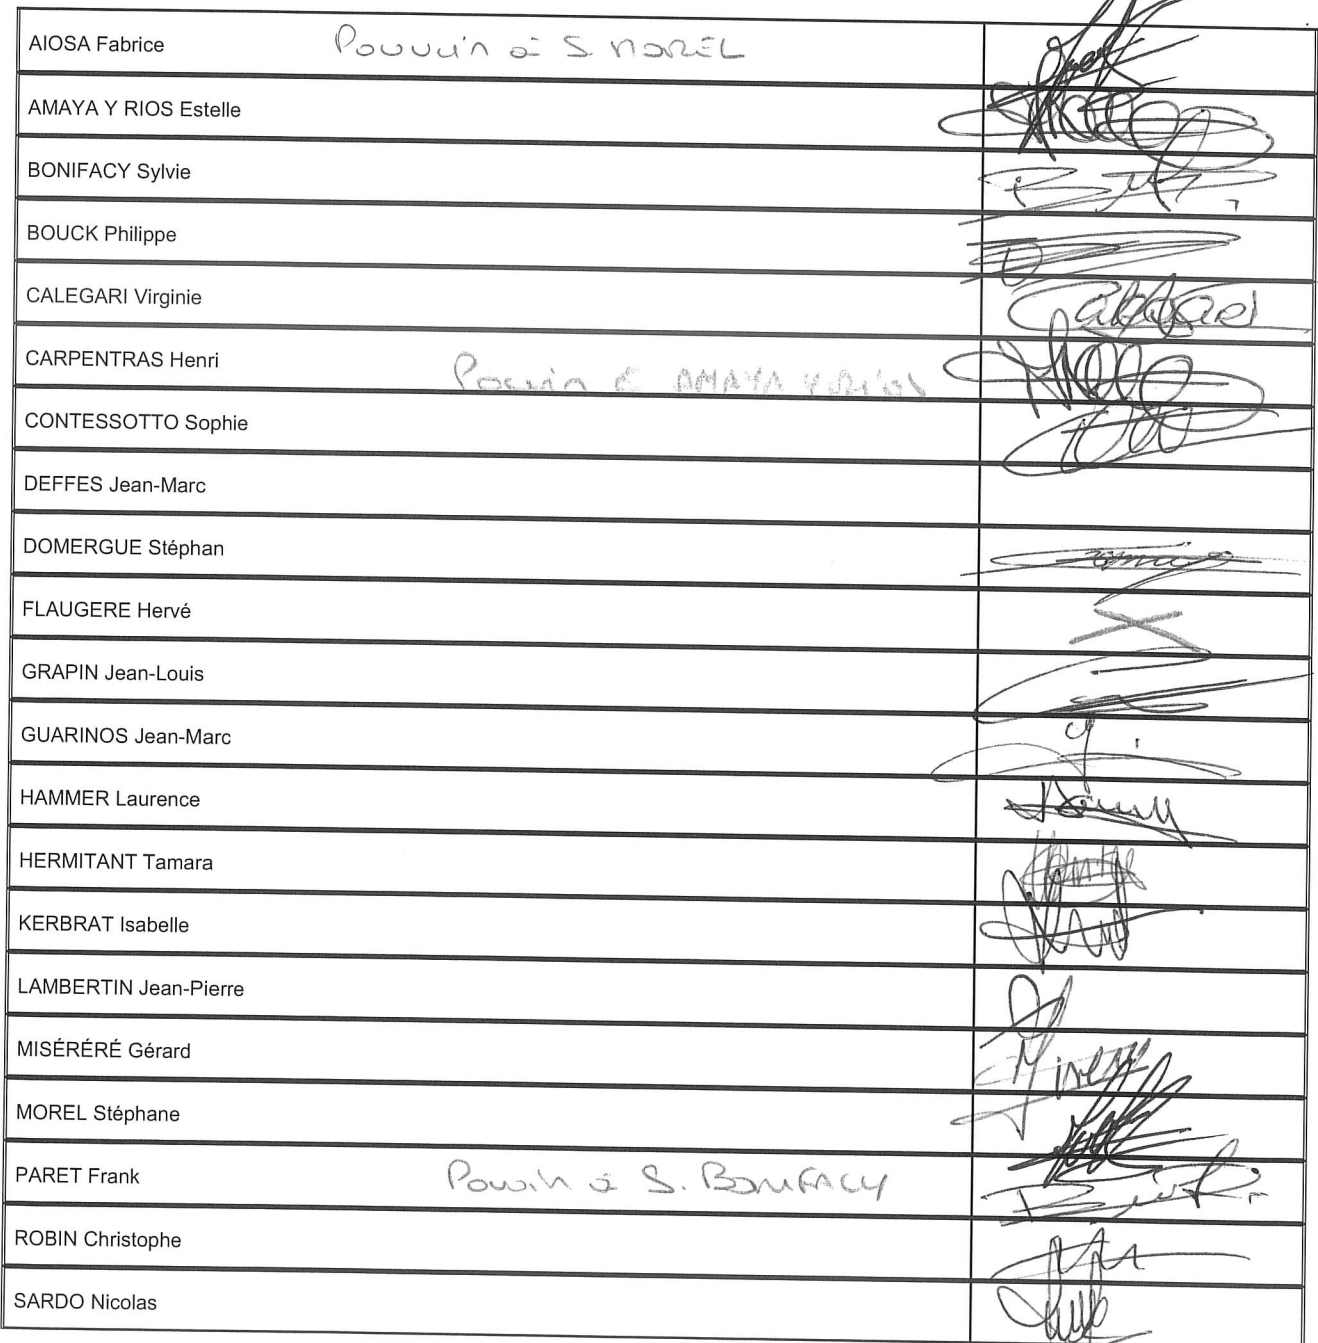 AIOSA Fabrice Pouvoir à S. MOREL
AMAYA Y RIOS Estelle
BONIFACY Sylvie
BOUCK Philippe
CALEGARI Virginie
CARPENTRAS Henri Pouvoir E AMAYA Y RIOS
CONTESSOTTO Sophie
DEFFES Jean-Marc
DOMERGUE Stéphan
FLAUGERE Hervé
GRAPIN Jean-Louis
GUARINOS Jean-Marc
HAMMER Laurence
HERMITANT Tamara
KERBRAT Isabelle
LAMBERTIN Jean-Pierre
MISÉRÉRÉ Gérard
MOREL Stéphane
PARET Frank Pouvoir à S. BONIFACY
ROBIN Christophe
SARDO Nicolas